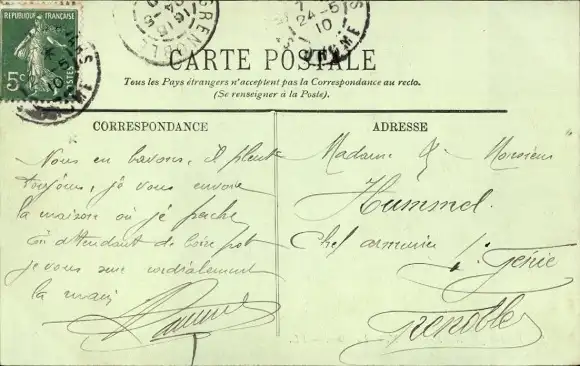 RÉPUBLIQUE FRANÇAISE
5c
POSTES
GRENOBLE
24-5
10
CARTE POSTALE
Tous les Pays étrangers n'acceptent pas la Correspondance au recto.
(Se renseigner à la Poste).
CORRESPONDANCE
Nous en bavons, il pleut
toujours, je vous envoie
la maison où je perche
En attendant de boire pot
je vous serre cordialement
la main
ADRESSE
Madame & Monsieur
Hummel
Chef armurier
Génie
Grenoble